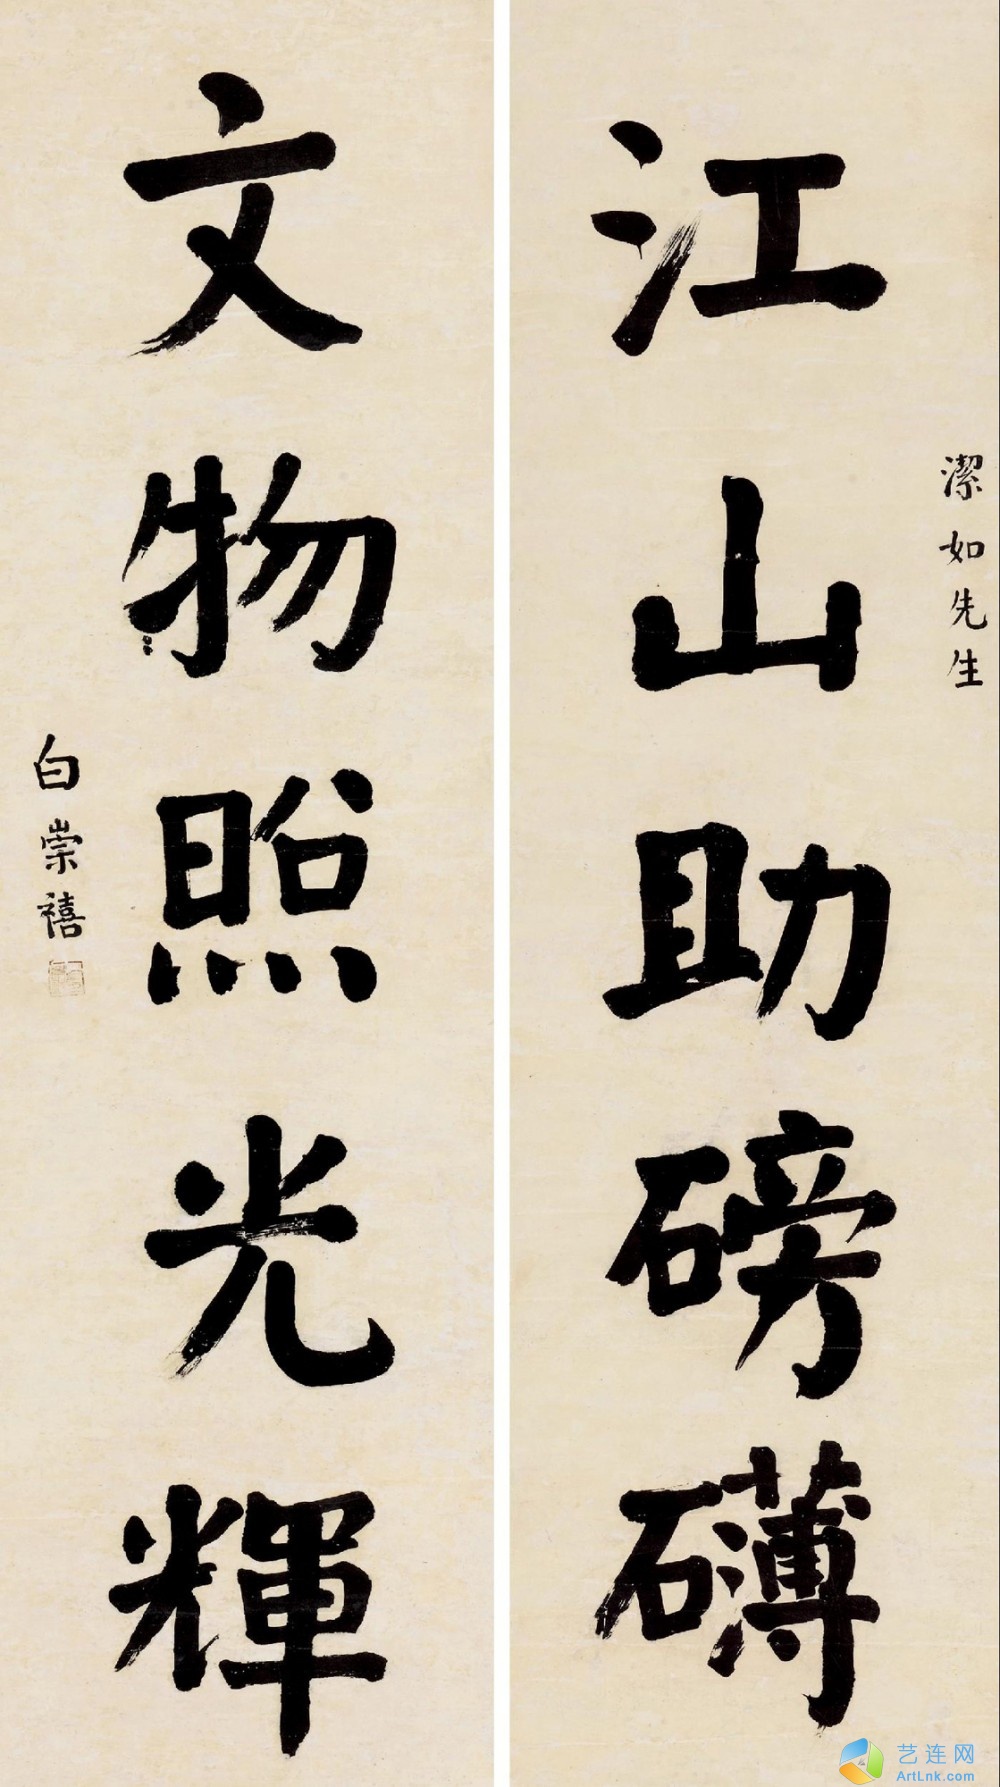 潔如先生
江山助磅礴
文物照光輝
白崇禧
艺连网
ArtLnk.com